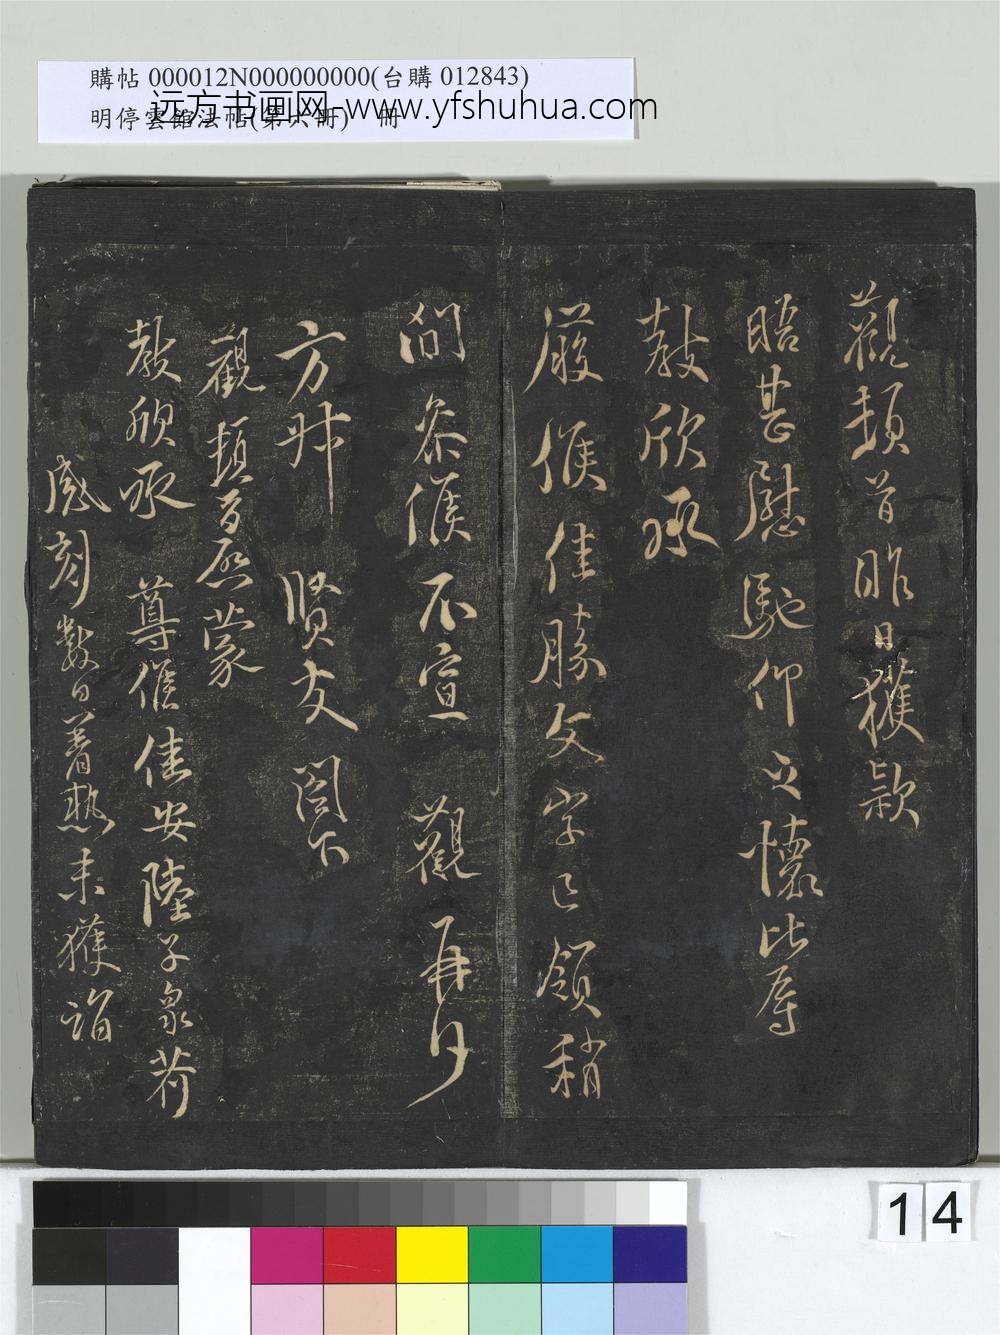 購帖 000012N000000000(台購 012843)
明停雲館法帖(第六冊) 冊
远方书画网-www.yfshuhua.com
觀頓首昨日獲款
晤甚慰馳仰之懷比辱
教欣承
嚴候佳勝文字已領稍
間參候不宣 觀再拜
方叔 賢友 閤下
觀頓首啟蒙
教欣承 尊候佳安陸子泉荷
感刻數日暑熱未獲詣
14